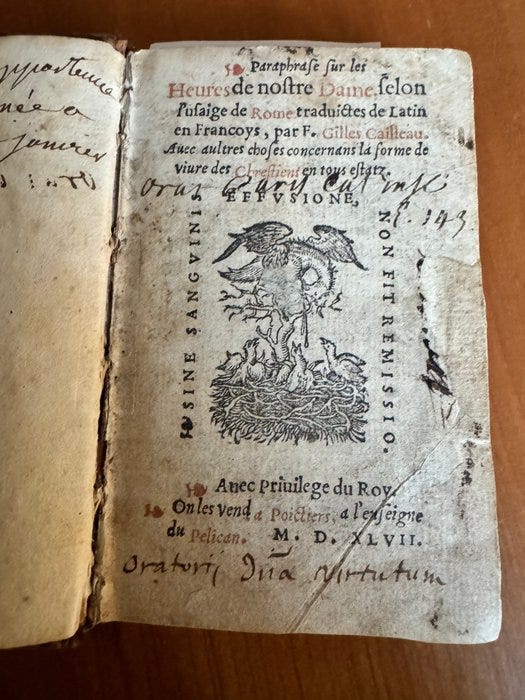 appartena
née a
janvier
Paraphrase sur les
Heures de nostre Dame, selon
l'usaige de Rome traduictes de Latin
en Francoys, par F. Gilles Cailleau.
Auec aultres choses concernans la forme de
viure des Chrestiens en tous estatz.
Orat Paris
SINE SANGVINIS
EFFVSIONE,
NON FIT REMISSIO.
143
Auec Priuilege du Roy.
On les vend a Poictiers, a l'enseigne
du Pelican. M. D. XLVII.
Oratorij Dnæ virtutum